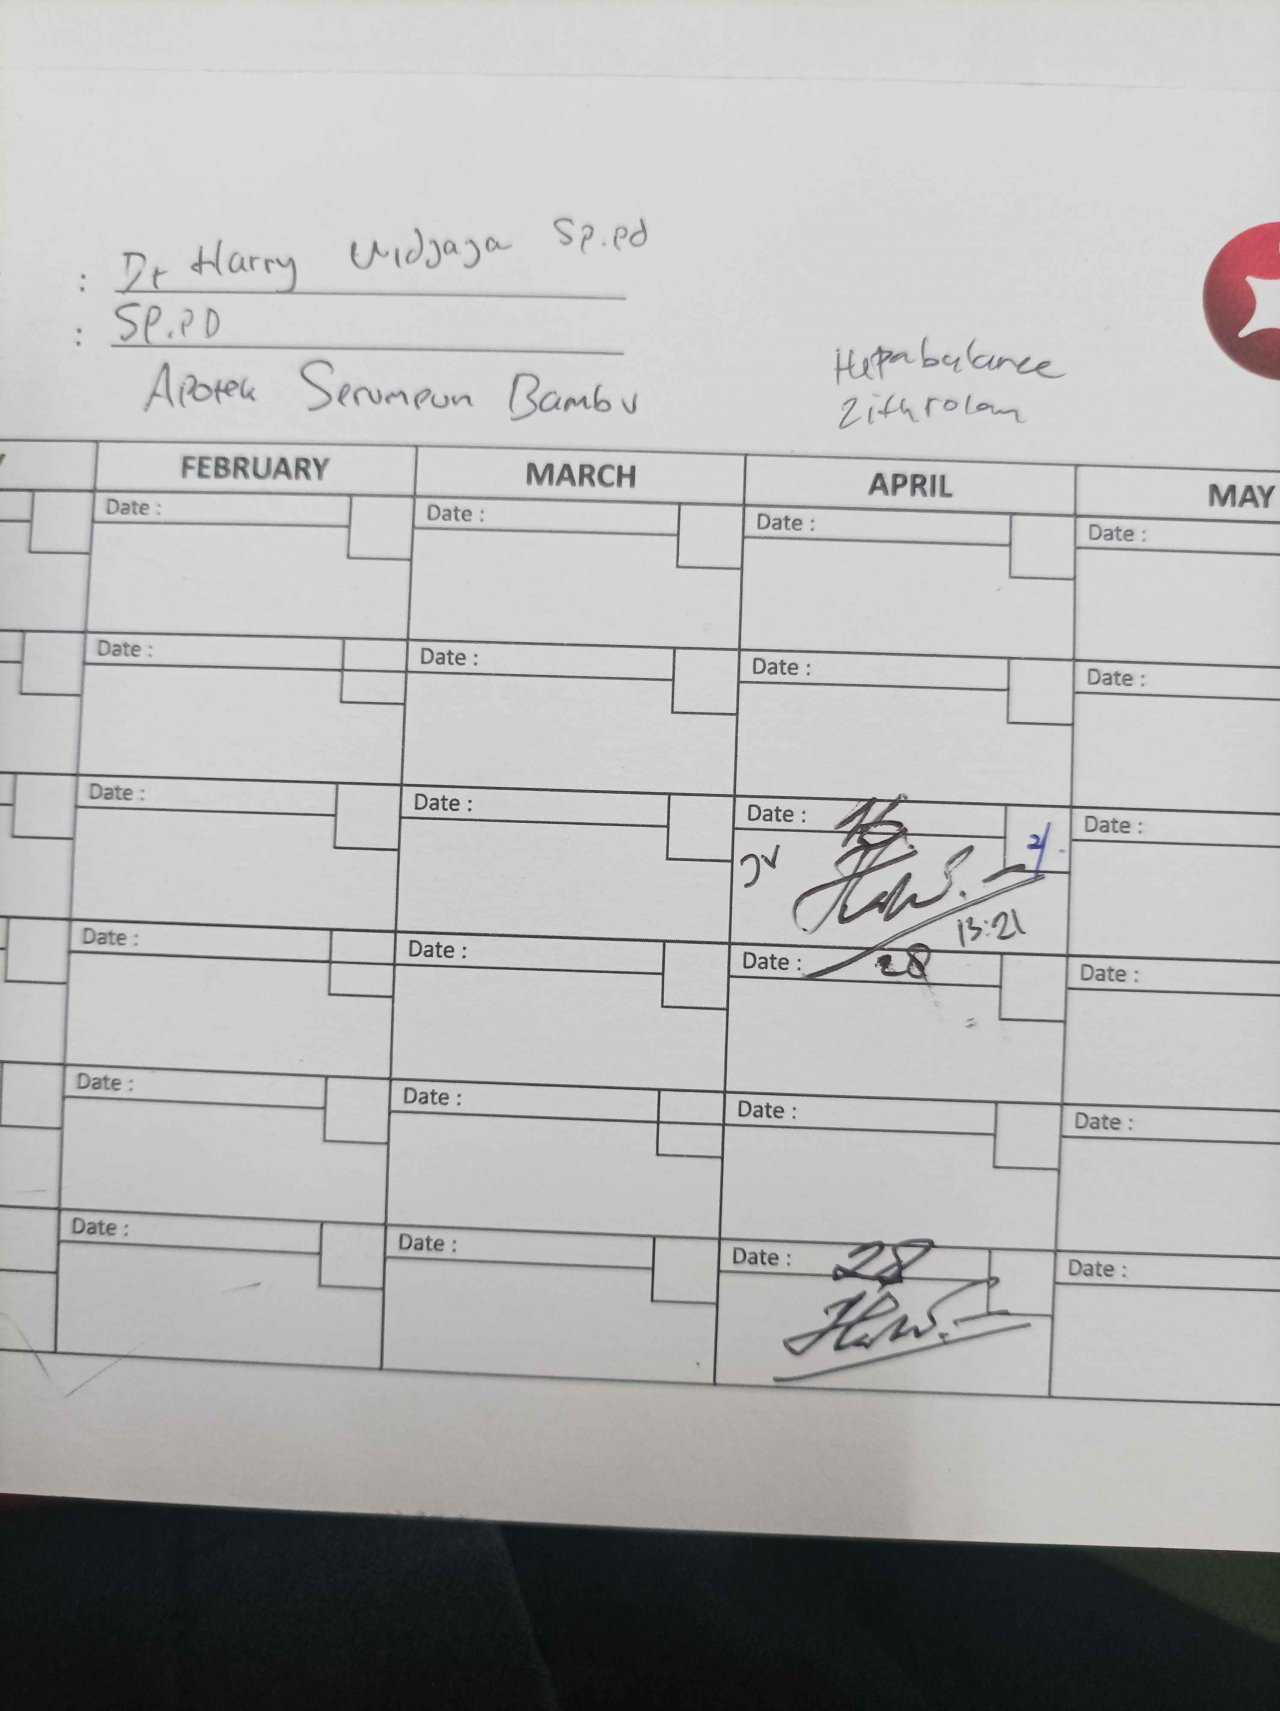 : Dr Harry Widjaja Sp.pd
: SP.PD
Apotek Serumpun Bambu
Hepabalance
Zithrolan
FEBRUARY MARCH APRIL MAY
Date : Date : Date : Date :
Date : Date : Date : Date :
Date : Date : Date : 16 Date :
13:21
Date : Date : Date : 28 Date :
Date : Date : Date : Date :
Date : Date : Date : 28 Date :